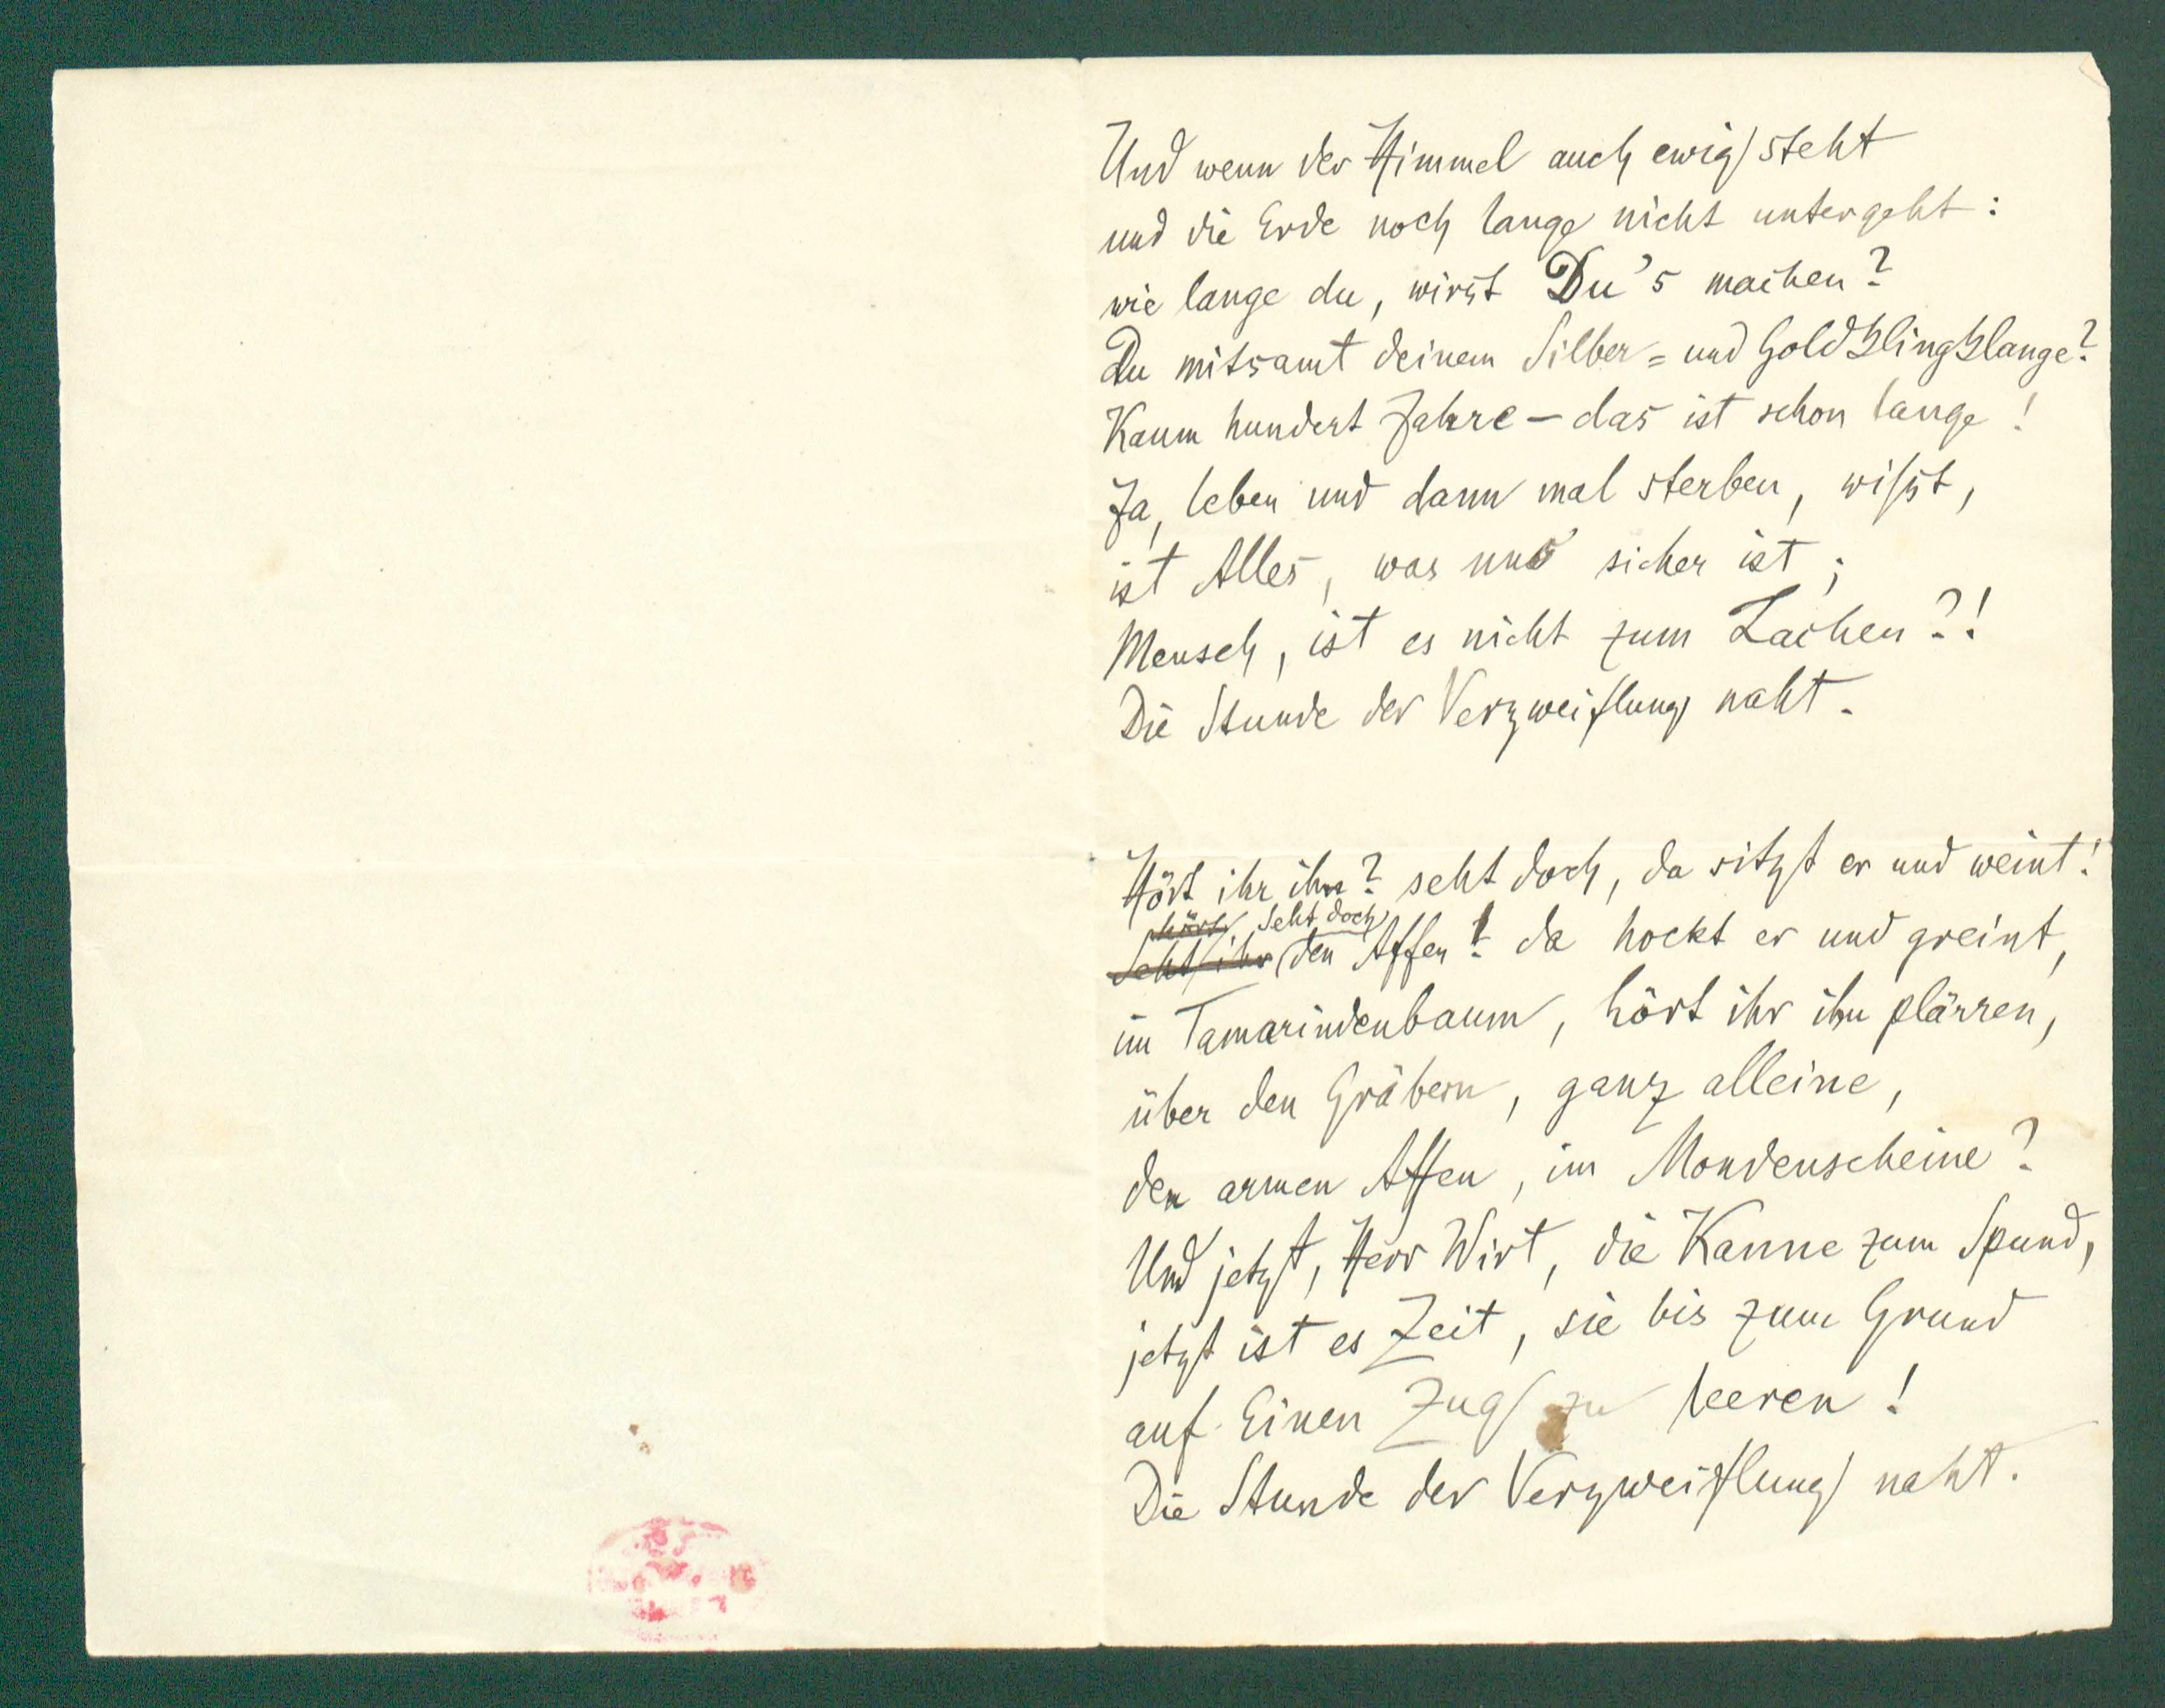 Und wenn der Himmel auch ewig steht
und die Erde noch lange nicht untergeht:
wie lange du, wirst Du's machen?
Du mitsamt deinem Silber= und Goldklingklange?
Kaum hundert Jahre – das ist schon lange!
Ja, leben und dann mal sterben, wißt,
ist Alles, was uns sicher ist;
Mensch, ist es nicht zum Lachen?!
Die Stunde der Verzweiflung naht.
Hört ihr ihn? seht doch, da sitzt er und weint!
hört Seht doch
Seht ihr den Affen! da hockt er und greint,
im Tamarindenbaum, hört ihr ihn plärren,
über den Gräbern, ganz alleine,
den armen Affen, im Mondenscheine?
Und jetzt, Herr Wirt, die Kanne zum Spund,
jetzt ist es Zeit, sie bis zum Grund
auf Einen Zug zu leeren!
Die Stunde der Verzweiflung naht.